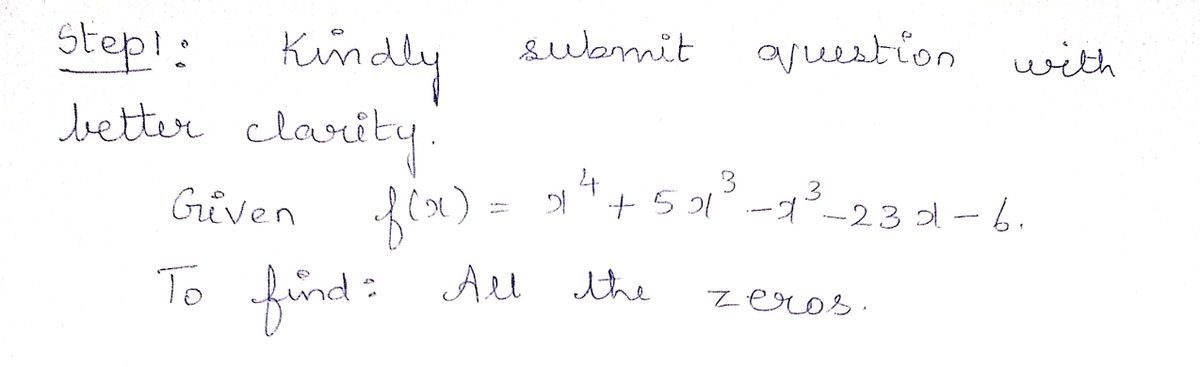 Step1: Kindly submit question with
better clarity.
Given f(x) = x⁴ + 5x³ - x³ - 23x - 6.
To find: All the zeros.